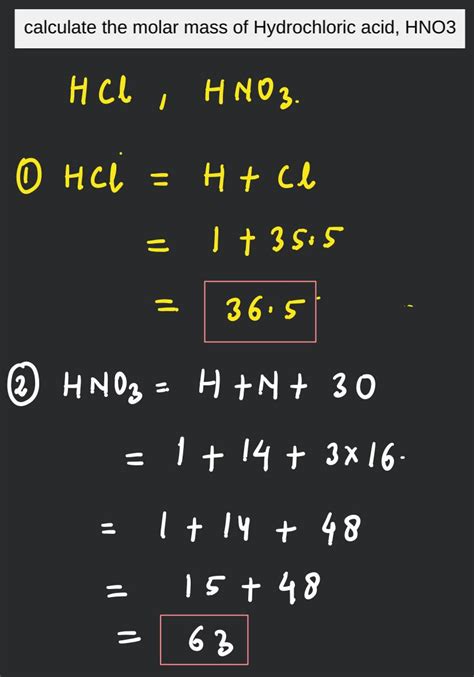 calculate the molar mass of Hydrochloric acid, HNO3
HCl , HNO3.
① HCl = H + Cl
= 1 + 35.5
= 36.5
② HNO3 = H + N + 3O
= 1 + 14 + 3×16.
= 1 + 14 + 48
= 15 + 48
= 63